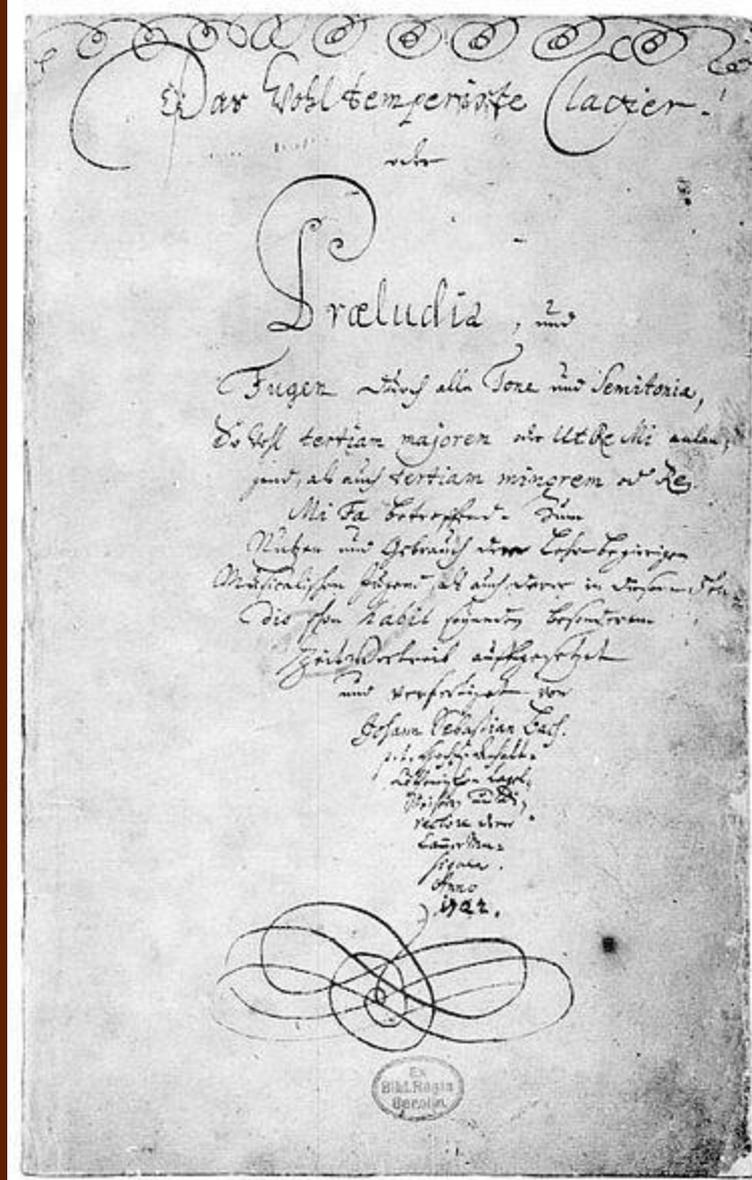 Das Wohltemperirte Clavier.
oder
Præludia, und
Fugen durch alle Tone und Semitonia,
So wohl tertiam majorem oder Ut Re Mi anlan-
gend, als auch tertiam minorem oder Re
Mi Fa betreffend. Zum
Nutzen und Gebrauch der Lehr-begierigen
Musicalischen Jugend, als auch derer in diesem stu-
dio schon habil seyenden besonderem
Zeitvertreib auffgesetzet
und verfertiget von
Johann Sebastian Bach.
p. t: Hochfürstl. Anhalt-
Cöthenischen Capel-
Meistern und Di-
rectore derer
Cammer Mu-
siquen.
Anno
1722.
Ex
Bibl. Regia
Berolin.